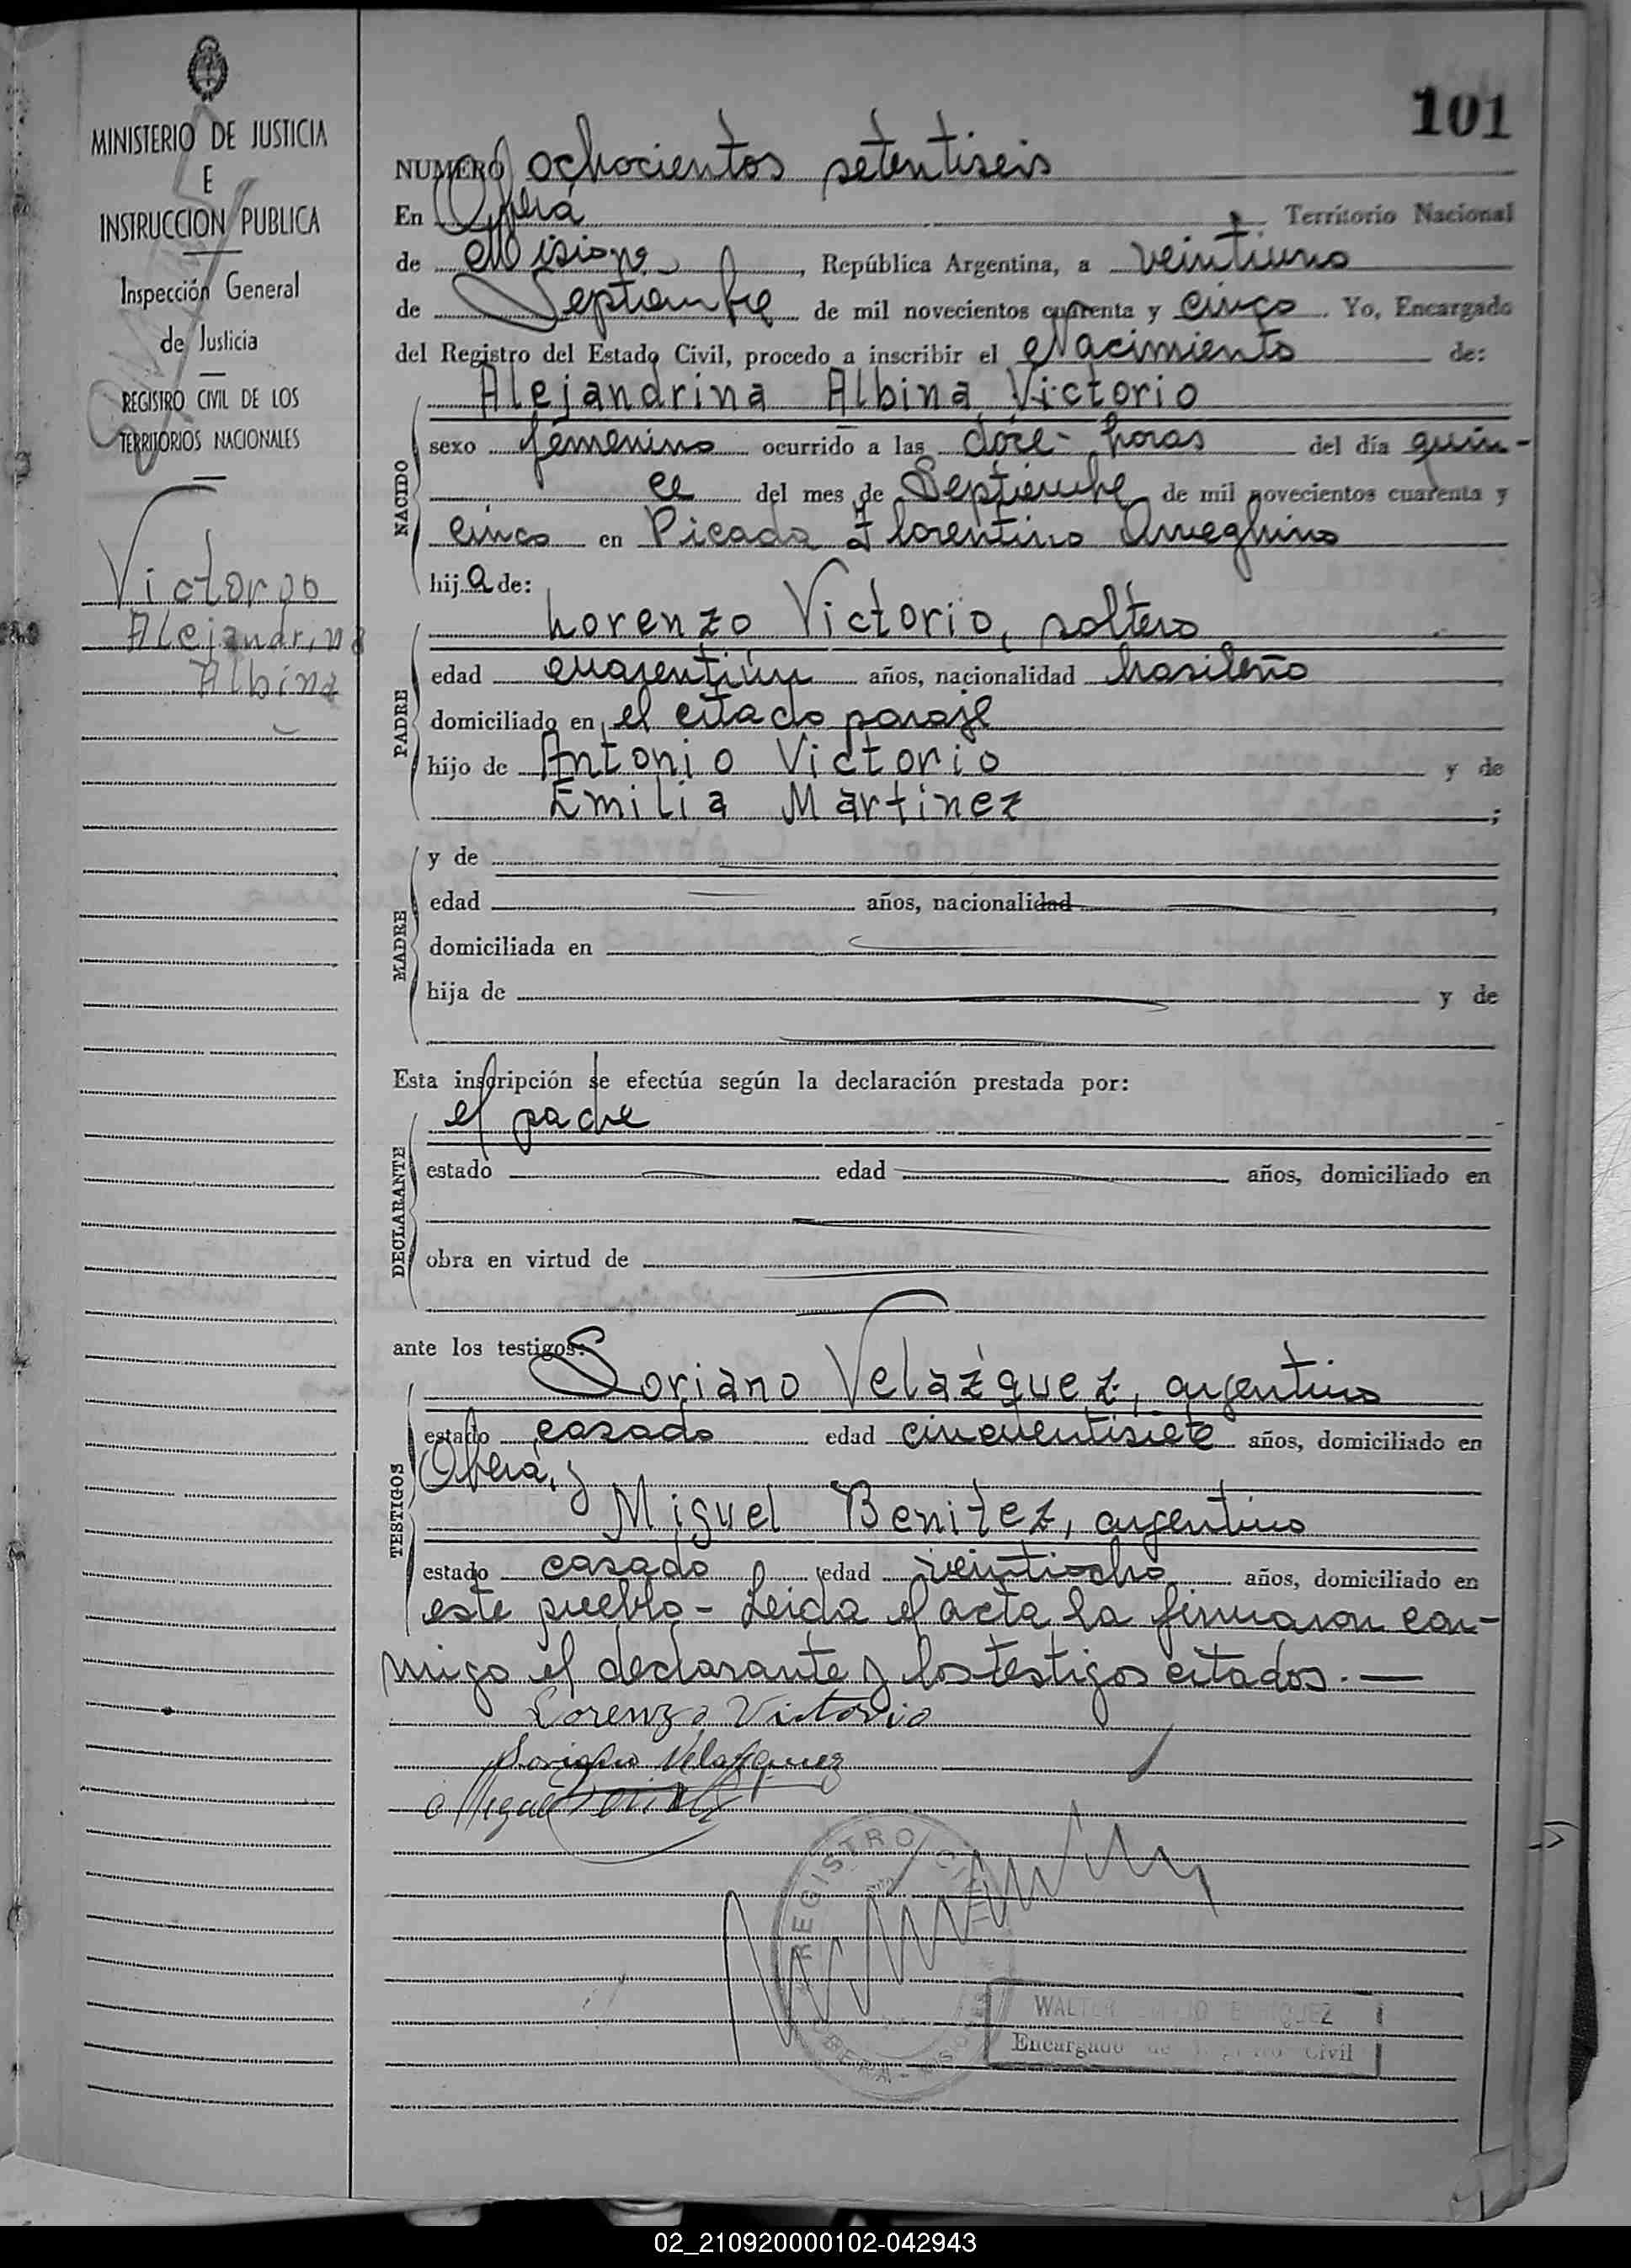 MINISTERIO DE JUSTICIA
E
INSTRUCCION PUBLICA
Inspección General
de Justicia
REGISTRO CIVIL DE LOS
TERRITORIOS NACIONALES
Victorio
Alejandrina
Albina
101
NUMERO ochocientos setentiseis
En Oberá Territorio Nacional
de Misiones, República Argentina, a veintiuno
de Septiembre de mil novecientos cuarenta y cinco. Yo, Encargado
del Registro del Estado Civil, procedo a inscribir el Nacimiento de:
Alejandrina Albina Victorio
NACIDO
sexo femenino ocurrido a las doce horas del día quin-
ce del mes de Septiembre de mil novecientos cuarenta y
cinco en Picada Florentino Ameghino
hija de:
Lorenzo Victorio, soltero
PADRE
edad cuarentiún años, nacionalidad brasileño
domiciliado en el citado paraje
hijo de Antonio Victorio y de
Emilia Martinez;
MADRE
y de
edad años, nacionalidad
domiciliada en
hija de y de
Esta inscripción se efectúa según la declaración prestada por:
el padre
DECLARANTE
estado edad años, domiciliado en
obra en virtud de
ante los testigos:
Soriano Velázquez, argentino
TESTIGOS
estado casado edad cincuentisiete años, domiciliado en
Oberá, y
Miguel Benitez, argentino
estado casado edad veintiocho años, domiciliado en
este pueblo - Leida el acta la firmaron con-
migo el declarante y los testigos citados. —
Lorenzo Victorio
Soriano Velazquez
Miguel Benitez
REGISTRO CIVIL
OBERA - MISIONES
WALTER ENRIQUEZ
Encargado de Registro Civil
02_210920000102-042943